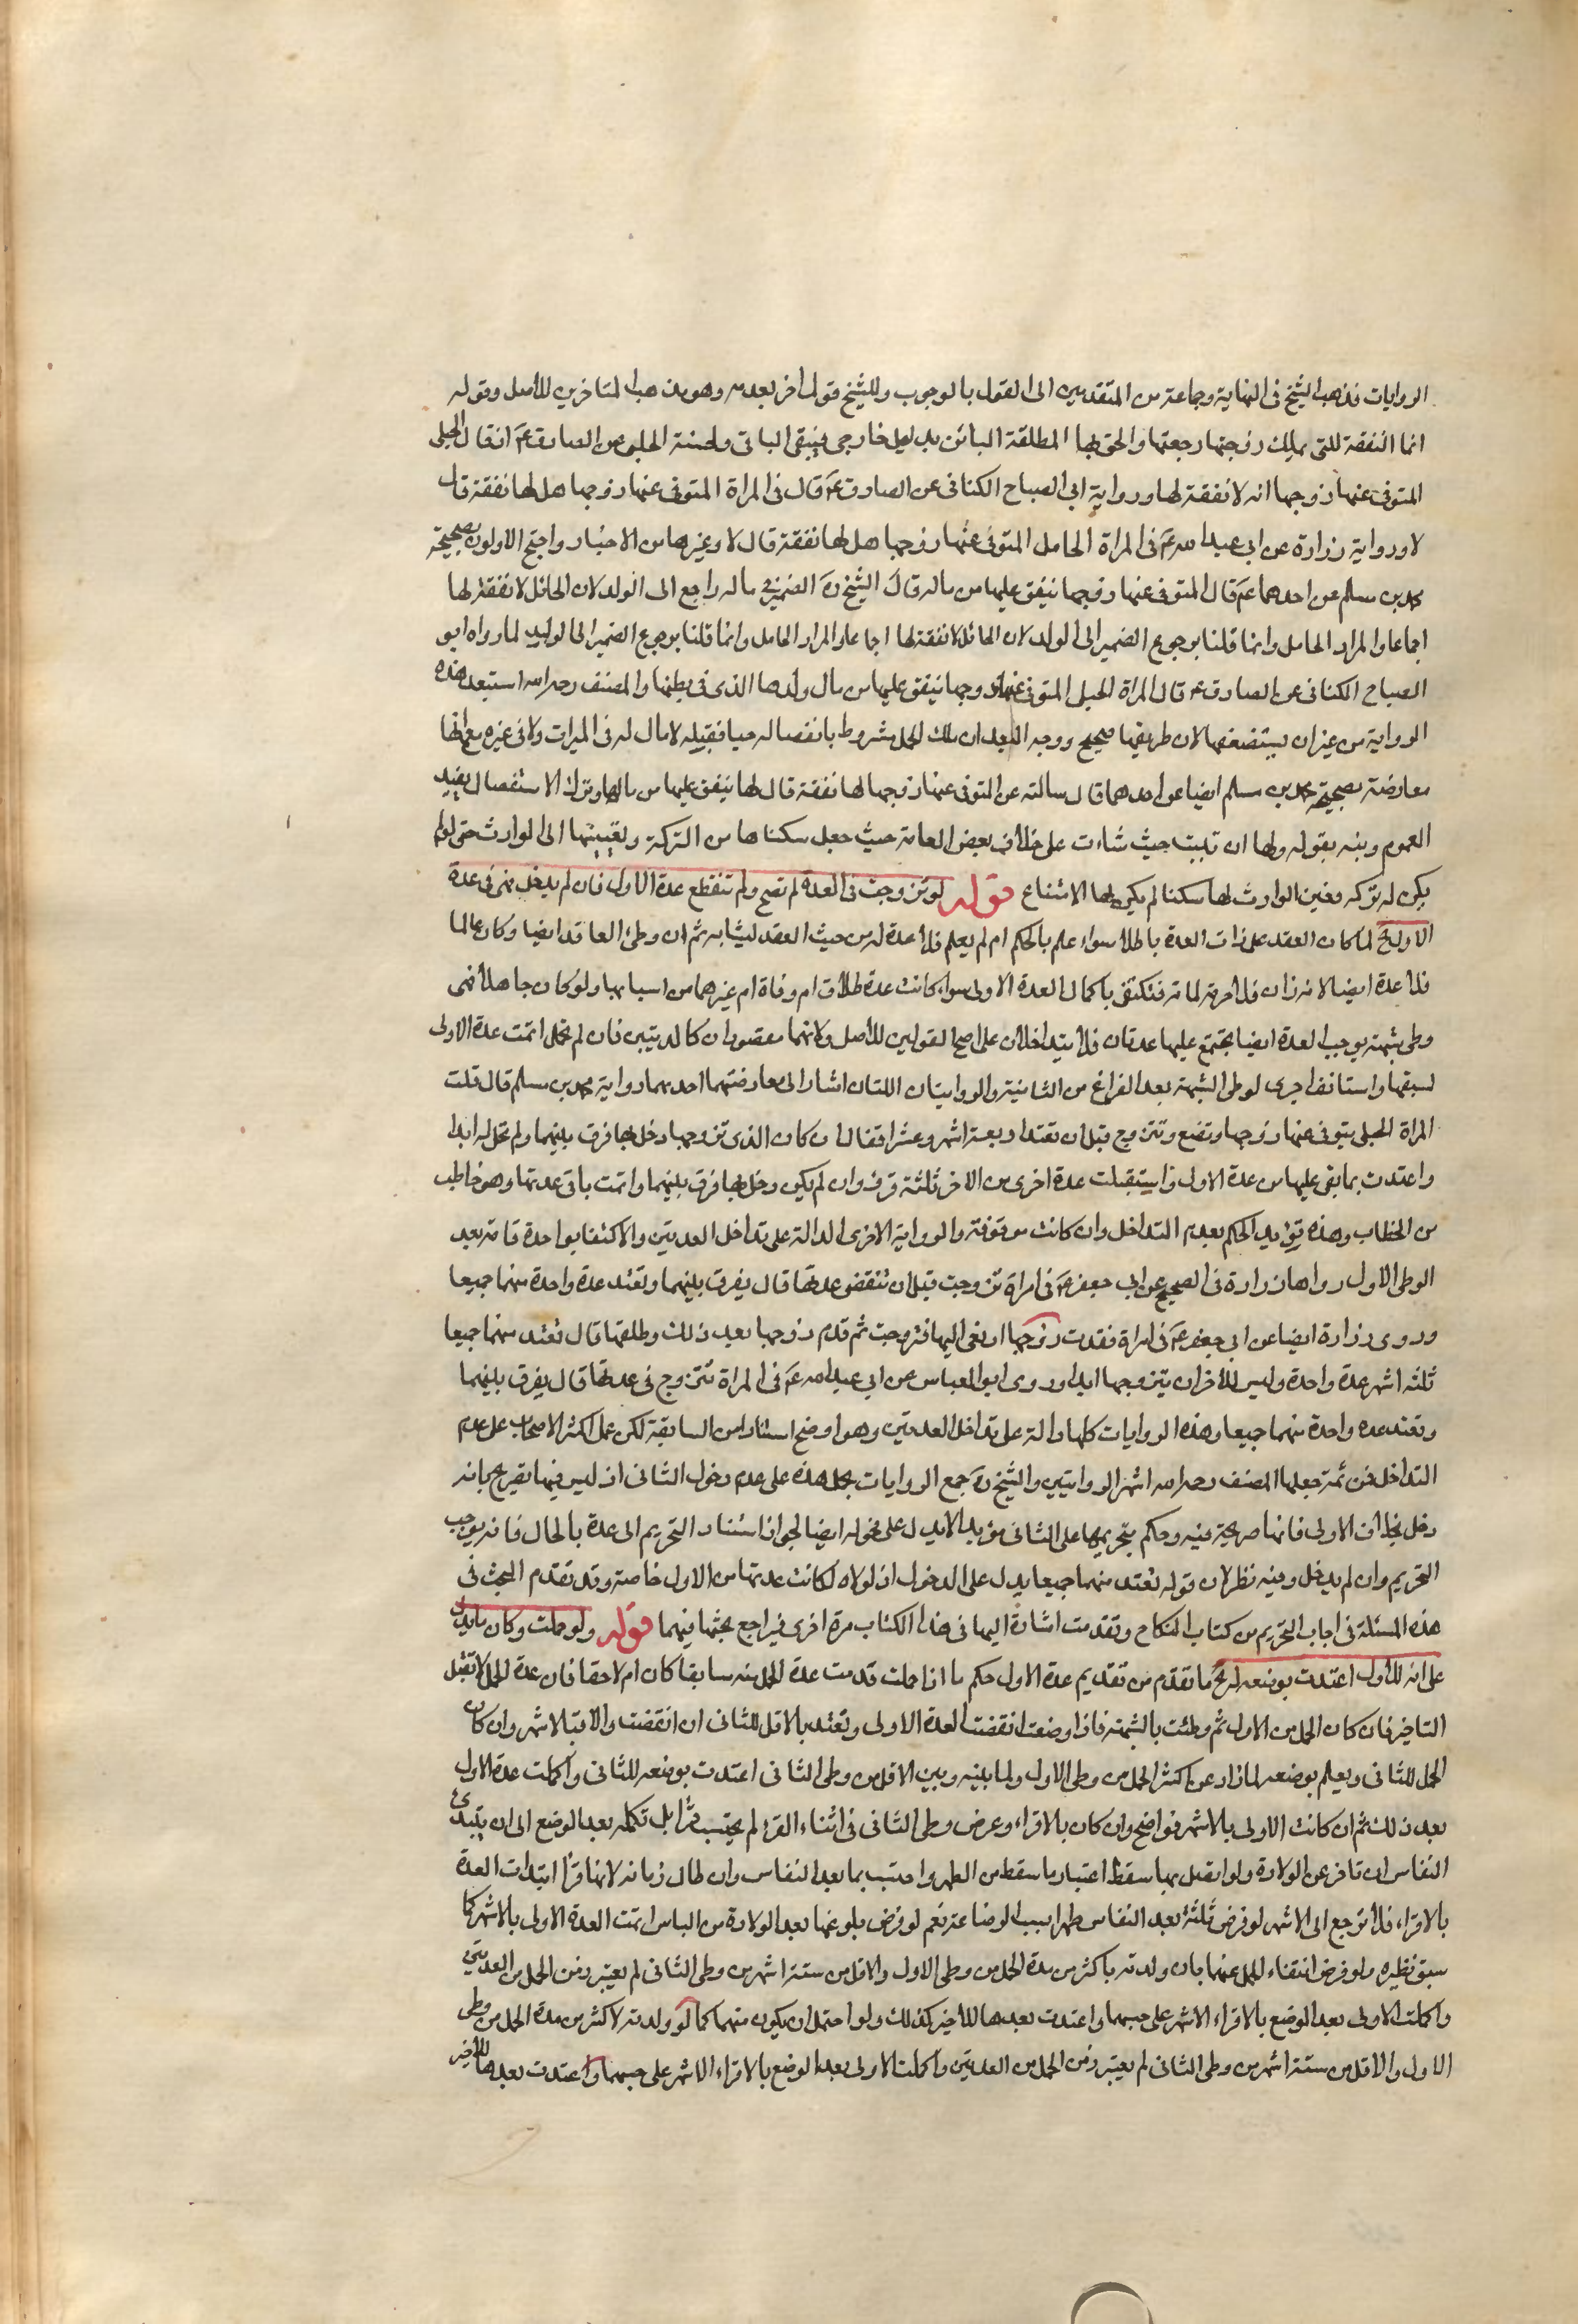 الروايات فذهب الشيخ فى النهاية وجماعة من المتقدمين الى القول بالوجوب وللشيخ قول اخر بعدمه وهو مذهب المتاخرين للاصل وقوله
انما النفقة للتى يملك زوجها رجعتها والحق بها المطلقة البائن بدليل خارجى فيبقى الباقى ولحسنة الحلبى عن الصادق عم انه قال الحبلى
المتوفى عنها زوجها انه لا نفقة لها ورواية ابى الصباح الكنانى عن الصادق عم قال فى المراة المتوفى عنها زوجها هل لها نفقة قال
لا ورواية زرارة عن ابى عبد الله عم فى المراة الحامل المتوفى عنها زوجها هل لها نفقة قال لا وغيرها من الاخبار واحتج الاولون بصحيحة
محمد بن مسلم عن احدهما عم قال المتوفى عنها زوجها ينفق عليها من ماله قال الشيخ ره الضمير فى ماله راجع الى الولد لان الحائل لا نفقة لها
اجماعا والمراد الحامل وانما قلنا برجوع الضمير الى الولد لان الحائل لا نفقة لها اجماعا والمراد الحامل وانما قلنا برجوع الضمير الى الوليد لما رواه ابو
الصباح الكنانى عن الصادق عم قال المراة الحبلى المتوفى عنها زوجها ينفق عليها من مال ولدها الذى فى بطنها والمصنف رحمه الله استبعد هذه
الرواية من غير ان يستضعفها لان طريقها صحيح ووجه البعد ان ملك الحمل مشروط بانفصاله حيا فقبله لا مال له فى الميراث ولا فى غيره مع انها
معارضة بصحيحة محمد بن مسلم ايضا عن احدهما قال سالته عن المتوفى عنها زوجها لها نفقة قال لها ينفق عليها من مالها وترك الاستفصال يفيد
العموم ونبه بقوله ولها ان تبيت حيث شاءت على خلاف بعض العامة حيث جعل سكناها من التركة وتعيينها الى الوارث حتى لو لم
يكن له تركه وعين الوارث لها سكنا لم يكن لها الامتناع قوله لو تزوجت فى العدة لم تصح ولم تنقطع عدة الاول فان لم يدخل فهى فى عدة
الاول الخ لما كان العقد على ذات العدة باطلا سواء علم بالحكم ام لم يعلم فلا عدة له من حيث العقد ليشابه ثم ان وطئ العاقد ايضا وكان عالما
فلا عدة ايضا لانه زان فلا حرمة لمائه فتكتفى باكمال العدة الاولى سواء كانت عدة طلاق ام وفاة ام غيرهما من اسبابها ولو كان جاهلا فهى
وطى شبهة يوجب العدة ايضا يجتمع عليها عدتان فلا يتداخلان على اصح القولين للاصل ولانهما مقصودان كالدينين فان لم تحمل اتمت عدة الاولى
لسبقها واستانف اخرى لوطى الشبهة بعد الفراغ من الثانية والروايتان اللتان اشار الى معارضتهما احدهما رواية محمد بن مسلم قال قلت
المراة الحبلى يتوفى عنها زوجها وتضع وتتزوج قبل ان تعتد اربعة اشهر وعشرا فقال ان كان الذى تزوجها دخل بها فرق بينهما ولم تحل له ابدا
واعتدت بما بقى عليها من عدة الاولى واستقبلت عدة اخرى من الاخر ثلثة قروء وان لم يكن دخل بها فرق بينهما واتمت باقى عدتها وهو خاطب
من الخطاب وهذه تؤيد الحكم بعدم التداخل وان كانت موقوفة والرواية الاخرى الدالة على تداخل العدتين والاكتفا بواحدة قامة بعد
الوطى الاول رواها زرارة فى الصحيح عن ابى جعفر عم فى امراة تزوجت قبل ان تنقضى عدتها قال يفرق بينهما وتعتد عدة واحدة منهما جميعا
وروى زرارة ايضا عن ابى جعفر عم فى امراة فقدت زوجها او نعى اليها فتزوجت ثم قدم زوجها بعد ذلك وطلقها قال تعتد منهما جميعا
ثلثه اشهر عدة واحدة وليس للاخر ان يتزوجها ابدا وروى ابو العباس عن ابى عبد الله عم فى المراة تتزوج فى عدتها قال يفرق بينهما
وتعتد عده واحدة منهما جميعا وهذه الروايات كلها دالة على تداخل العدتين وهو اوضح اسنادا من السابقة لكن عمل اكثر الاصحاب على عدم
التداخل فمن ثمة جعلها المصنف رحمه الله اشهر الروايتين والشيخ ره جمع الروايات بحمل هذه على عدم دخول الثانى اذ ليس فيها تصريح بانه
دخل بخلاف الاولى فانها صريحة فيه وحكم بتحريمها على الثانى مؤبدا لا يدل على دخوله ايضا لجواز استناد التحريم الى عدة بالحال فانه يوجب
التحريم وان لم يدخل وفيه نظر لان قوله تعتد منهما جميعا يدل على الدخول اذ لولاه لكانت عدتها من الاول خاصة وقد تقدم البحث فى
هذه المسئلة فى اجاب التحريم من كتاب النكاح وتقدمت اشارة اليها فى هذا الكتاب مرة اخرى فيراجع بحثها فيهما قوله ولو حملت وكان ما يدل
على انه للاول اعتدت بوضعه له الخ ما تقدم من تقديم عدة الاول حكم ما اذا حملت قدمت عدة الحمل منه سابقا كان ام لاحقا فان عدة الحمل لا تقبل
التاخير فان كان الحمل من الاول ثم وطئت بالشبهة فاذا وضعت انقضت العدة الاولى وتعتد بالاقل للثانى ان انقضت والا فبالاشهر وان كان
الحمل للثانى ويعلم بوضعه لما زاد عن اكثر الحمل من وطى الاول ولما بينه وبين الاقل من وطى الثانى اعتدت بوضعه للثانى واكملت عدة الاول
بعد ذلك ثم ان كانت الاولى بالاشهر فواضح وان كان بالاقراء وعرض وطى الثانى فى اثناء القرء لم يحتسب قرأ بل تكمله بعد الوضع الى ان يبتدئ
النفاس ان تاخر عن الولادة ولو اتصل بها سقط اعتبار ما سقط من الطهر واحتسب بما بعد النفاس وان طال زمانه لانها قرأ ابتدات العدة
بالاقراء فلا ترجع الى الاشهر لو فرض ثلثة بعد النفاس طهرا بسبب الرضاعة نعم لو فرض بلوغها بعد الولادة سن الياس اتمت العدة الاولى بالاشهر كما
سبق نظيره ولو فرض انتفاء الحمل عنهما بان ولدته باكثر من مدة الحمل من وطى الاول والاقل من ستة اشهر من وطى الثانى لم يعتبر زمن الحمل من العدتين
واكملت الاولى بعد الوضع بالاقراء الاشهر على حسبها واعتدت بعدها للاخير كذلك ولو احتمل ان يكون منهما كما لو ولدته لاكثر من مدة الحمل من وطى
الاول والاقل من ستة اشهر من وطى الثانى لم يعتبر زمن الحمل من العدتين واكملت الاولى بعد الوضع بالاقراء الاشهر على حسبها واعتدت بعدها للاخير